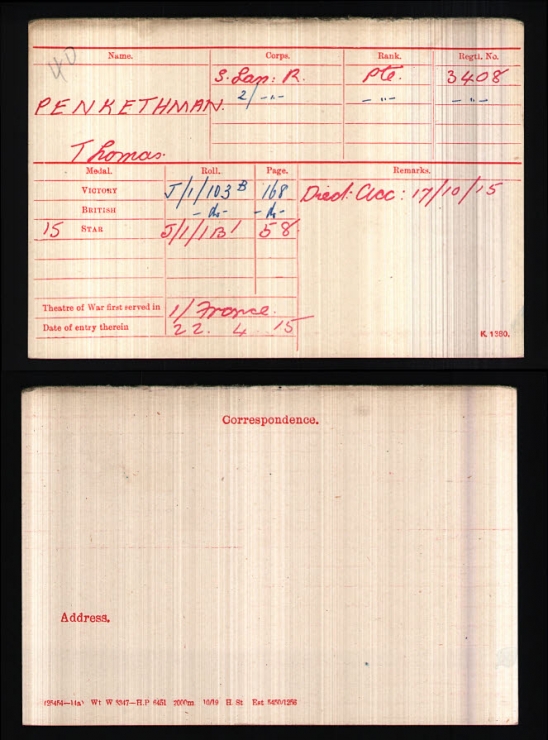 40
Name. Corps. Rank. Regtl. No.
S. Lan: R. Pte. 3408
2/ -"- -"- -"-
PENKETHMAN.
Thomas.
Medal. Roll. Page. Remarks.
VICTORY J/1/103 B 168 Died: Acc: 17/10/15
BRITISH -do- -do-
15 STAR J/1/1 B1 58
Theatre of War first served in 1/ France.
Date of entry therein 22. 4. 15
K. 1380.
Correspondence.
Address.
(25454—11a) Wt W 5347—H.P 6451 7000m 10/19 H. St Est 5450/1256